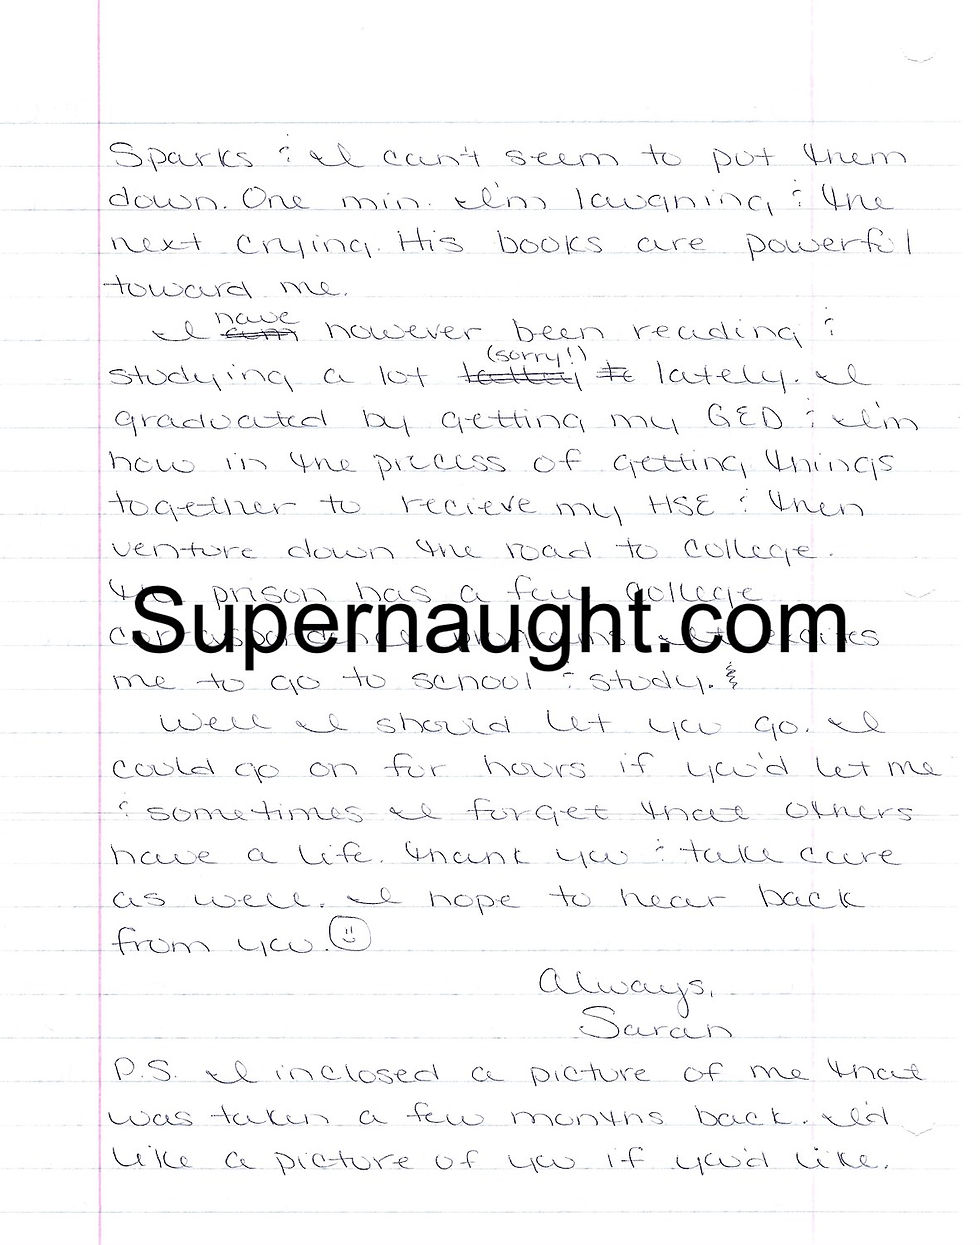 Sparks & I can't seem to put them
down. One min. I'm laughing & the
next crying. His books are powerful
toward me.
have
I however been reading &
(sorry!)
studying a lot lately. I
graduated by getting my GED & I'm
now in the process of getting things
together to recieve my HSE & then
venture down the road to college.
prison has a few college
Supernaught.com
correspondence programs. It excites
me to go to school & study.
Well I should let you go. I
could go on for hours if you'd let me
& sometimes I forget that others
have a life. Thank you & take care
as well. I hope to hear back
from you.
Always,
Sarah
P.S. I inclosed a picture of me that
was taken a few months back. I'd
like a picture of you if you'd like.